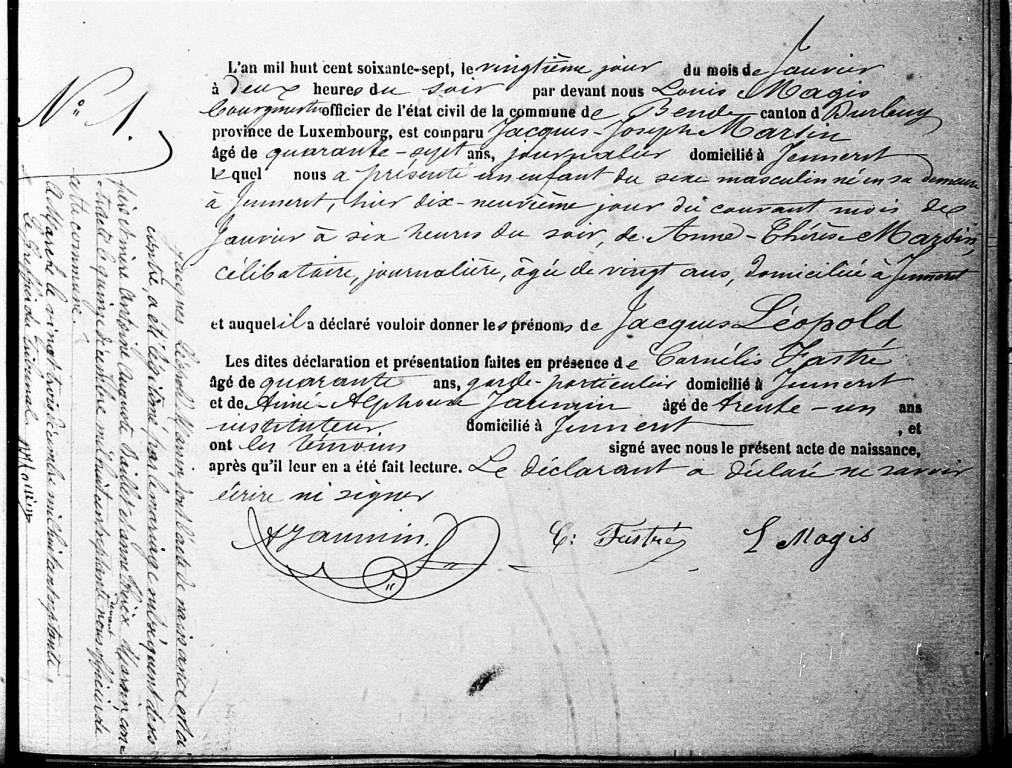 N° 1.
L'an mil huit cent soixante-sept, le vingtième jour du mois de Janvier
à deux heures du soir par devant nous Louis Magis
Bourgmestre officier de l'état civil de la commune de Bende canton d Durbuy
province de Luxembourg, est comparu Jacques-Joseph Martin
âgé de quarante-sept ans, journalier domicilié à Jenneret
lequel nous a présenté un enfant du sexe masculin né en sa demeure
à Jenneret, hier dix-neuvième jour du courant mois de
Janvier à six heures du soir, de Anne-Thérèse Martin,
célibataire, journalière, âgée de vingt ans, domiciliée à Jenneret
et auquel il a déclaré vouloir donner les prénoms de Jacques Léopold
Les dites déclaration et présentation faites en présence de Cornélis Fastré
âgé de quarante ans, garde-particulier domicilié à Jenneret
et de Aimé-Alphonse Jaumin âgé de trente-un ans
instituteur domicilié à Jenneret, et
ont les témoins signé avec nous le présent acte de naissance,
après qu'il leur en a été fait lecture. Le déclarant a déclaré ne savoir
écrire ni signer
A Jaumin. C: Fastré L Magis
Jacques Léopold Martin dont l'acte de naissance est ci
contre a été légitimé par le mariage subséquent de ses
père et mère Antoine Auguste et Anne Thérèse Martin con-
tracté le quinze décembre mil huit cent septante devant nous officier de
cette commune.
à Marche le vingt trois décembre mil huit cent septante.
Le Greffier du tribunal